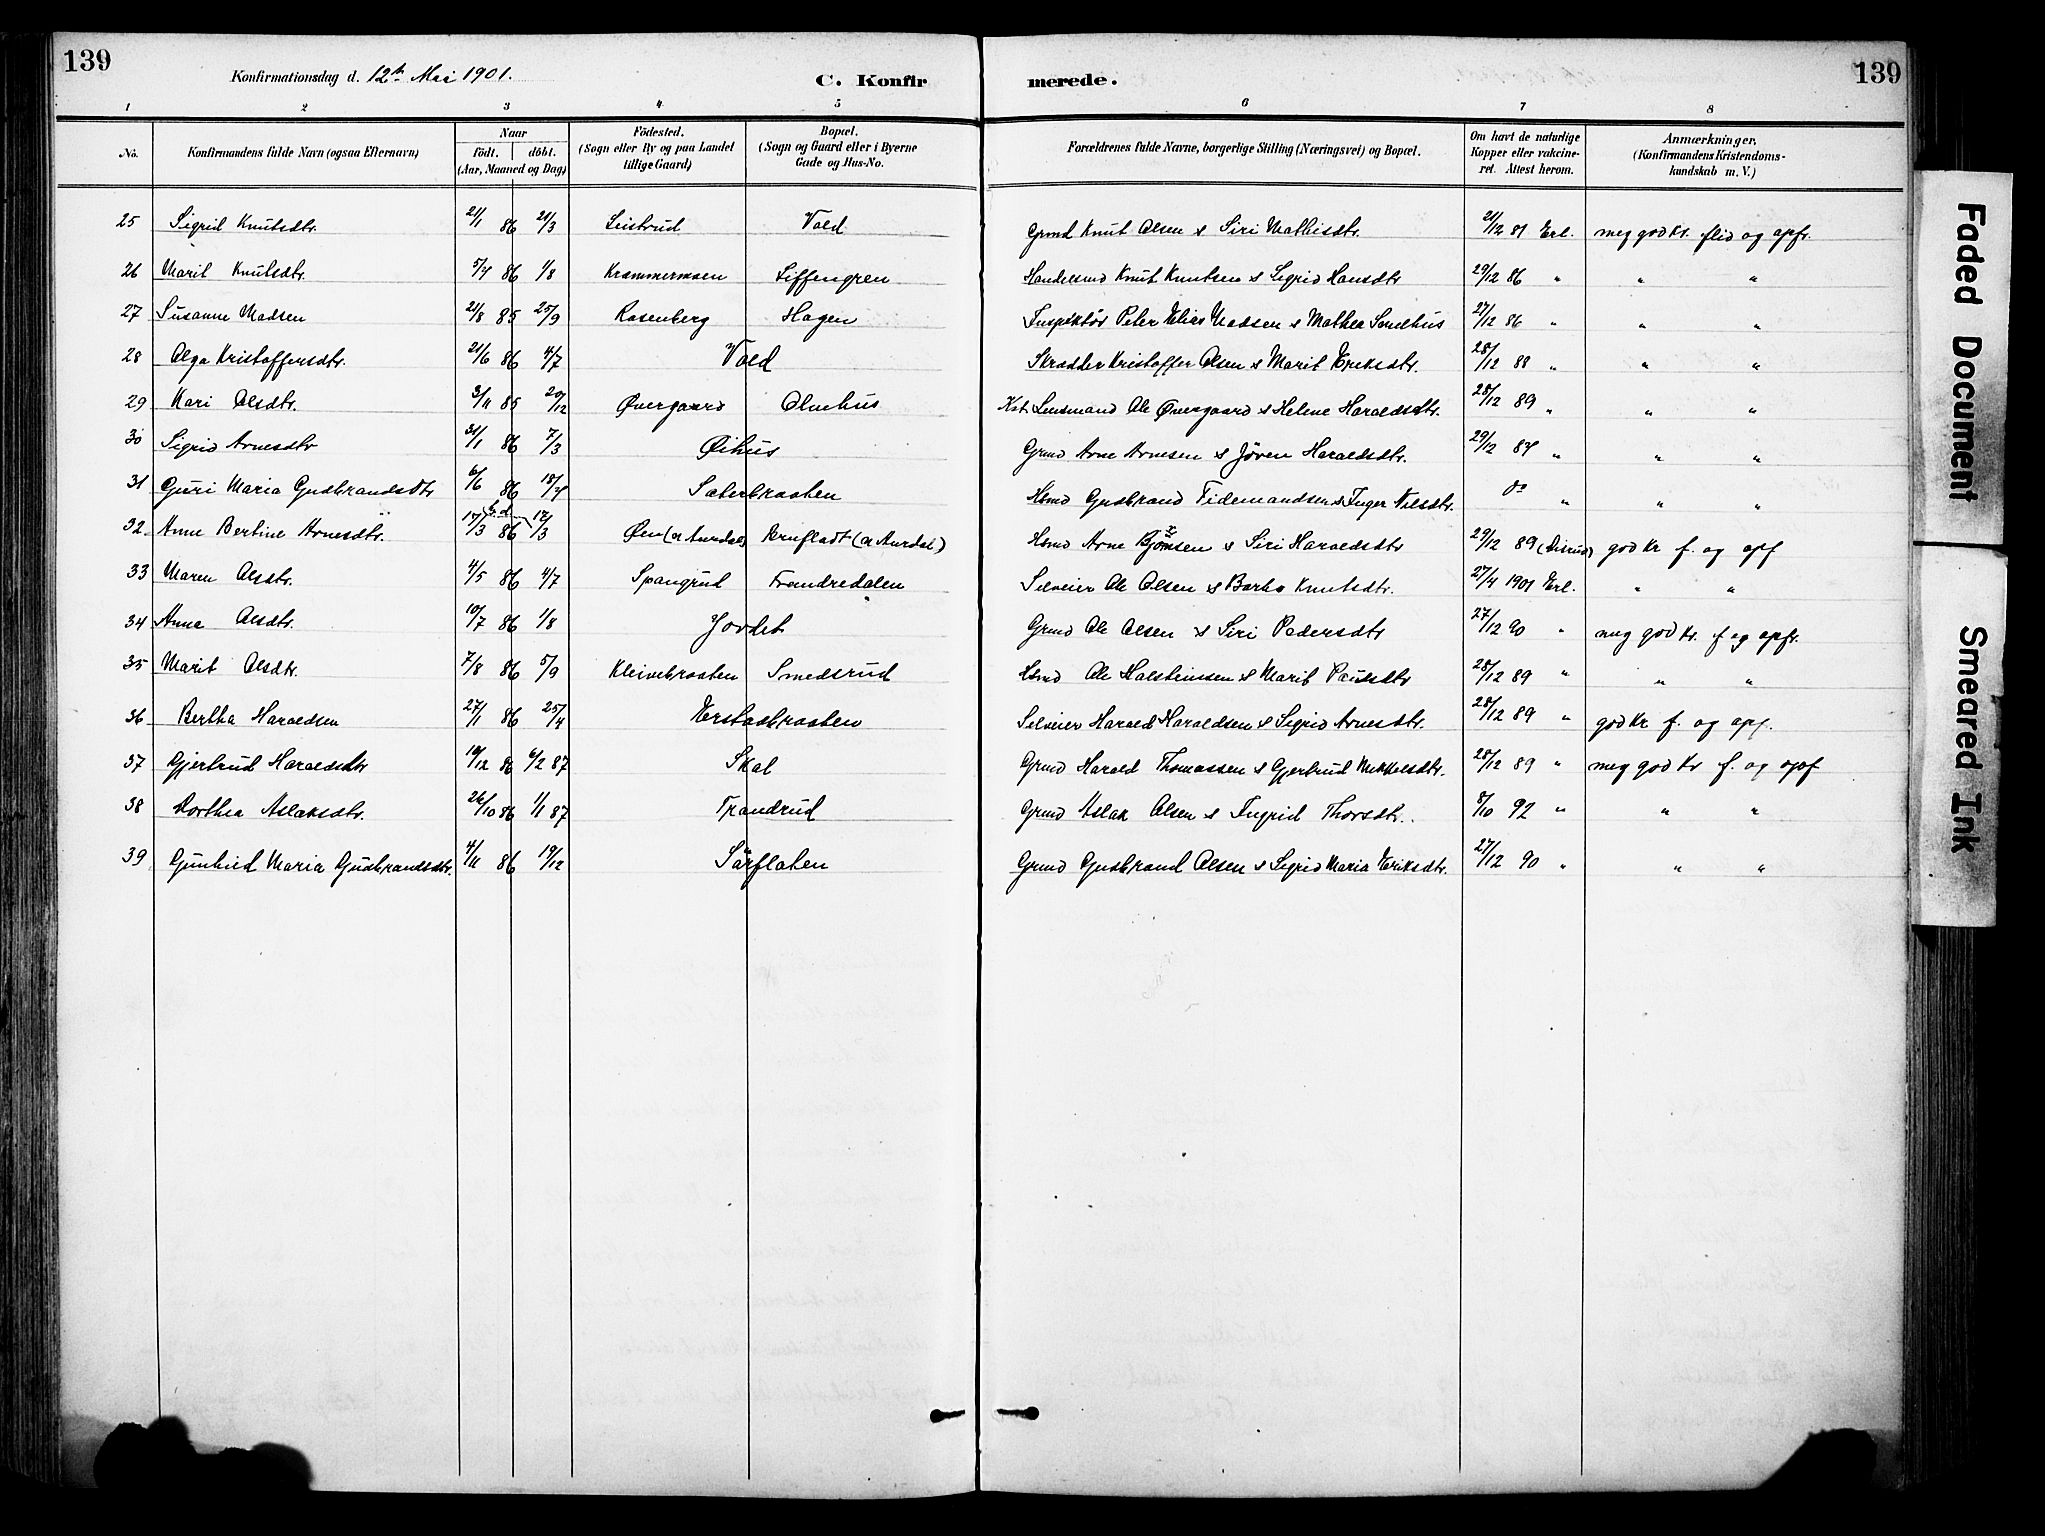 139
Konfirmationsdag d. 12th Mai 1901.
C. Konfirmerede.
139
1 2 3 4 5 6 7 8
No.
Konfirmandens fulde Navn (ogsaa Efternavn)
Naar födt. döbt. (Aar, Maaned og Dag)
Födested. (Sogn eller By og paa Landet tillige Gaard)
Bopæl. (Sogn og Gaard eller i Byerne Gade og Hus-No.
Forældrenes fulde Navne, borgerlige Stilling (Næringsvei) og Bopæl.
Om havt de naturlige Kopper eller vakcineret. Attest herom.
Anmærkninger. (Konfirmandens Kristendomskundskab m. V.)
25 Sigrid Knutsdtr. 21/1 86 21/3 Leistrud Vold Grmd Knut Olsen & Siri Mathisdtr. 21/12 Erl. meg god kr. flid og opf.
26 Marit Knutsdtr. 86 1/8 Krammermoen Liffengren Handelsmd Knut Knutsen & Sigrid Hansdtr 29/12 86 " " "
27 Susanne Madsen 21/8 85 25/9 Rosenberg Hagen Inspektör Peter Elias Madsen & Mathea Sandhus 27/12 86 " " "
28 Olga Kristoffersdtr. 21/6 86 4/7 Vold Skrædder Kristoffer Olsen & Marit Eriksdtr. 28/12 88 " " "
29 Kari Olsdtr. 3/11 85 20/12 Øvergaard Olmhus Kst. Lensmand Ole Øvergaard & Helene Haraldsdtr. 28/12 89 " " "
30 Sigrid Arnesdtr 31/1 86 7/3 Øihus Grmd Arne Arnesen & Jören Haraldsdtr. 29/12 " " "
31 Guri Maria Gudbrandsdtr 6/6 86 18/7 Sæterbraaten Hsmd Gudbrand Tidemandsen & Inger Nilsdtr. do " " "
32. Anne Bertine Arnesdtr. 17/3 86 17/3 Øen (ø Aurdal) (ø Aurdal) Hsmd Arne Björnsen & Siri Haraldsdtr 29/12 89 god kr f. og opf
33 Maren Olsdtr. 4/5 86 4/7 Spangrud Trondredalen Selveier Ole Olsen & Barbo Knutsdtr. 27/4 1901 Erl. " "
34 Anne Olsdtr. 10/7 86 1/8 Jordet Grmd Ole Olsen & Siri Pedersdtr 27/12 90 " meg god kr. f og opfr.
35 Marit Olsdtr. 7/8 86 5/9 Kleivebraaten Smedsrud Hsmd Ole Halsteinsen & Marit Paulsdtr 28/12 89 " " "
36 Bertha Haraldsen 27/1 86 25/4 Erstadbraaten Selveier Harald Haraldsen & Sigrid Arnesdtr. 28/12 89 " god kr f. og opf.
37 Gjertrud Haraldsdtr 19/12 86 6/2 87 Skol Grmd Harald Thomassen & Gjertrud Mikkelsdtr. 28/12 89 " meg god kr f. og opf
38 Dorthea Aslaksdtr. 26/10 86 1/1 87 Trondrud Grmd Aslak Olsen & Ingrid Thorsdtr. 8/10 92 " " "
39 Gunhild Maria Gudbrandsdtr. 4/11 86 19/12 Sörflaten Grmd Gudbrand Olsen & Sigrid Maria Eriksdtr. 27/12 90 " " "
Faded Document
Smeared Ink